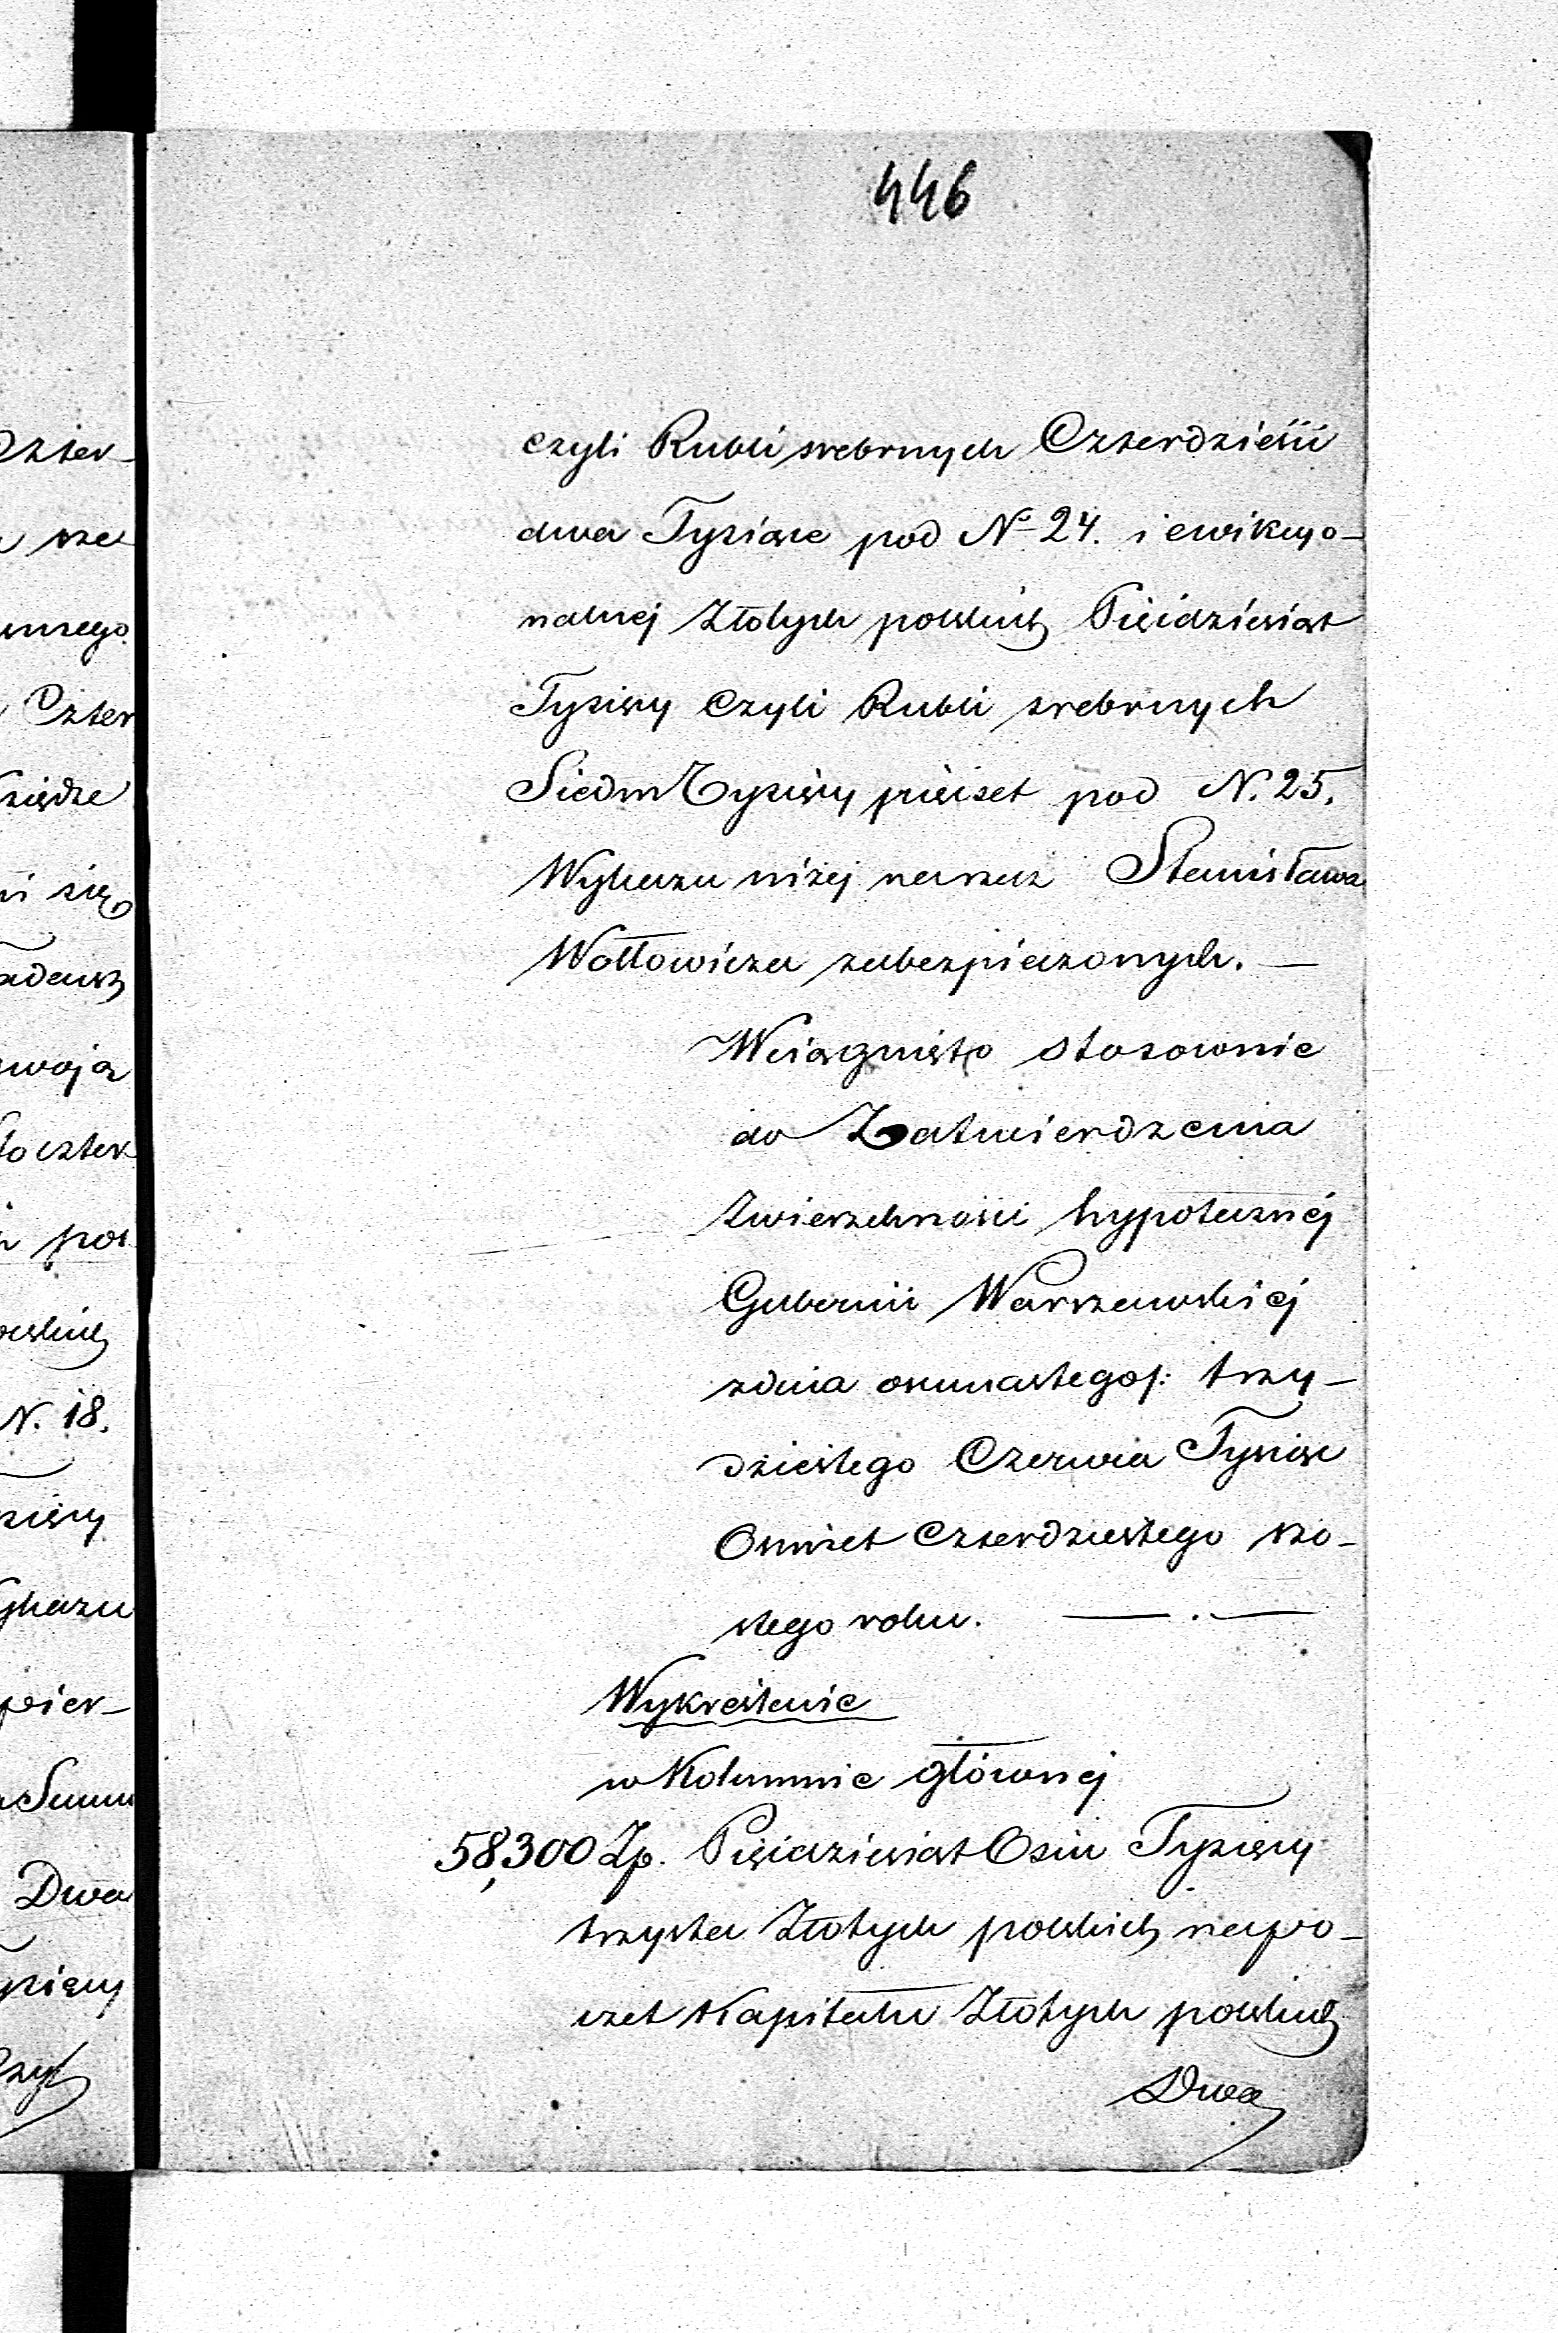 446
czyli Rubli srebrnych Czterdzieści
dwa Tysiące pod No 24. i ewikcyo-
nalnej Złotych polskich Pięćdziesiąt
Tysięcy czyli Rubli srebrnych
Siedm Tysięcy pięćset pod N. 25.
Wykazu niżej na rzecz Stanisława
Wołłowicza zabezpieczonych. —
Wciągnięto stosownie
do Zatwierdzenia
Zwierzchności hypotecznej
Gubernii Warszawskiej
z dnia osmnastego/: trzy-
dziestego Czerwca Tysiąc
Osmset Czterdziestego szó-
stego roku. — . —
Wykreślenie
w Kolumnie głównej
58,300 Zp. Pięćdziesiąt Osim Tysięcy
trzysta Złotych polskich na po-
czet Kapitału Złotych polskich
Dwa